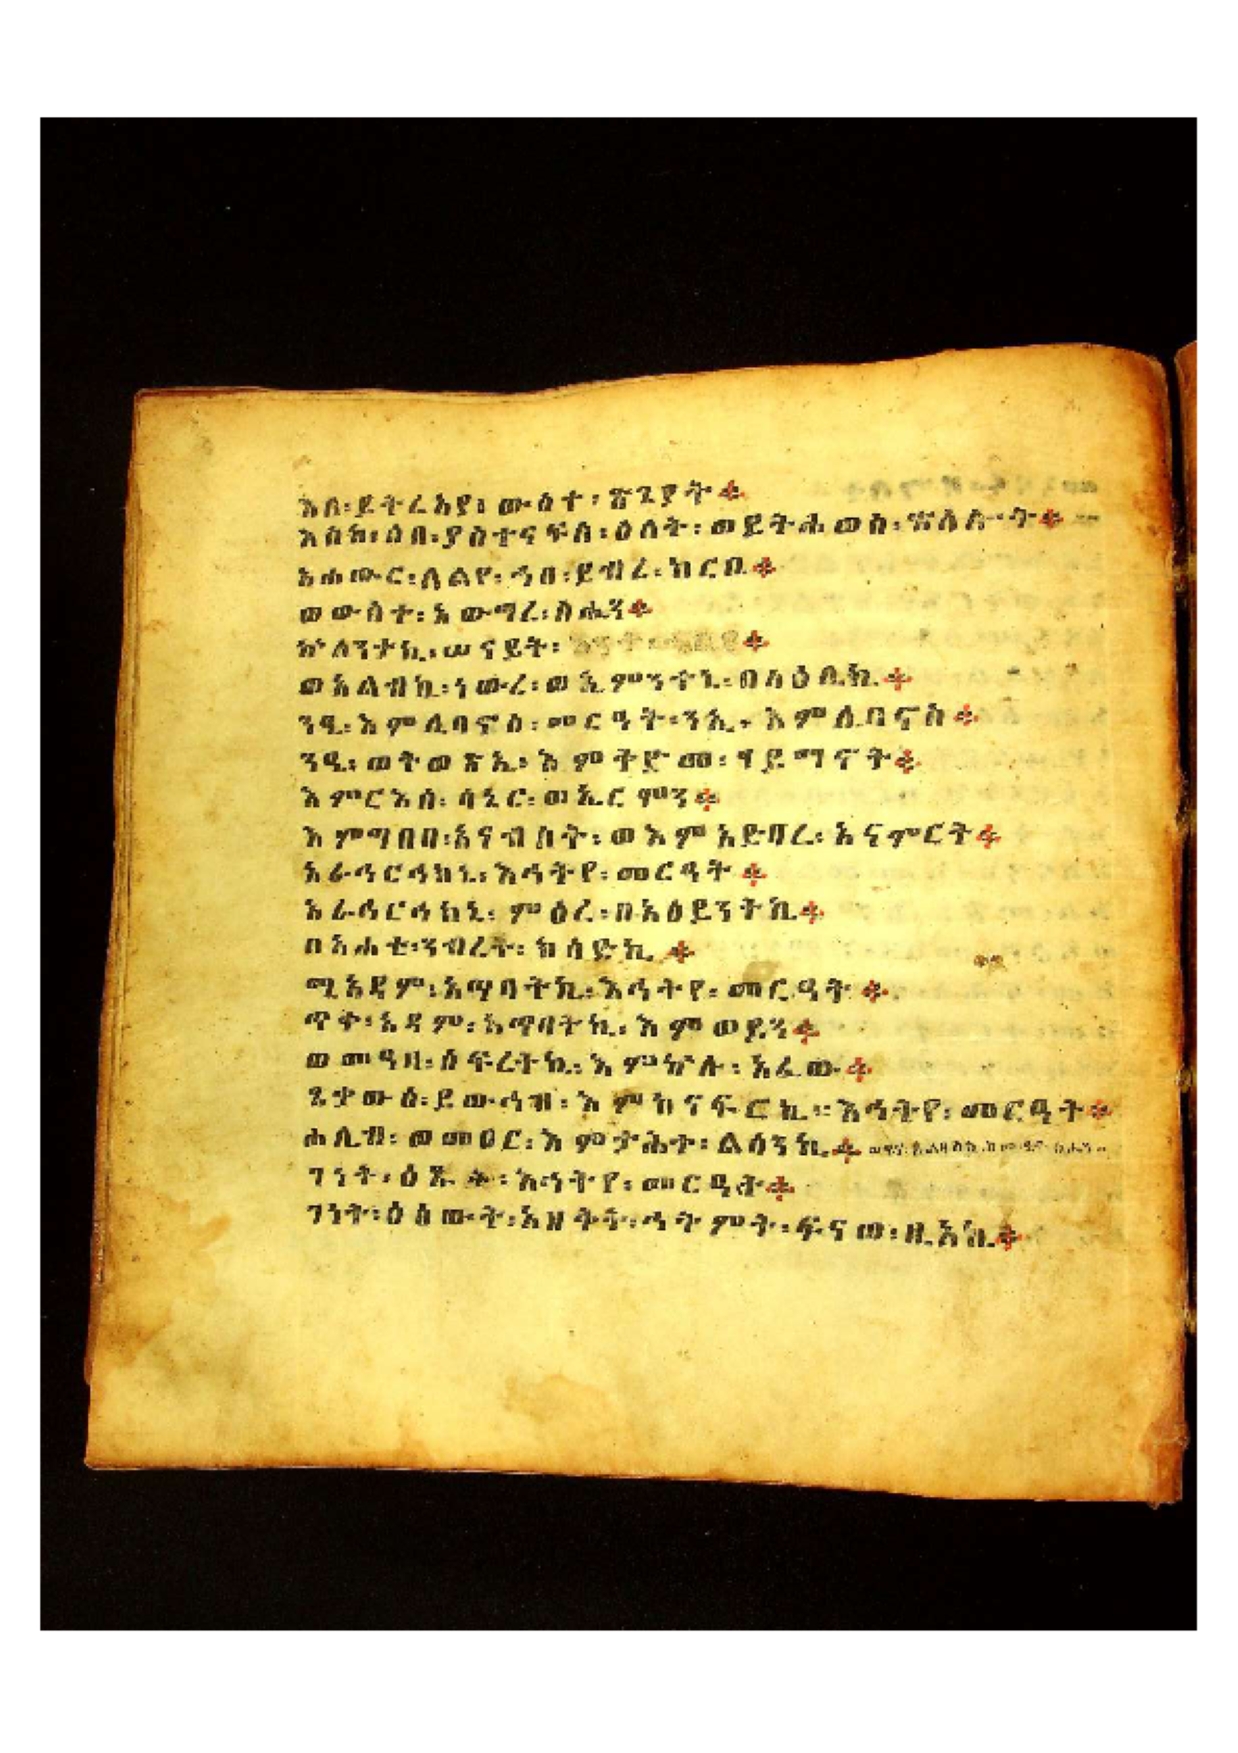 እለ፡ይትረአያ፡ ውስተ፡ ጽጌያት።
እስከ፡ ሶበ፡ ያስተናፍስ፡ ዕለት፡ ወይትሐወስ፡
አሐውር፡ ሊልየ፡ ኀበ፡ ደብረ፡ ከርቤ።
ወውስተ፡ አውግረ፡ ስሒን።
ኵለንታኪ፡ ሠናይት፡
ወአልብኪ፡ ነውረ፡ ወኢምንትኒ፡ በላዕሌኪ።
ንዒ፡ እምሊባኖስ፡ መርዓት፡ ንዒ፡ እምሊባኖስ።
ንዒ፡ ወትወፅኢ፡ እምትድመ፡ ሃይማኖት።
እምርእሰ፡ ሳኔር፡ ወኤርሞን።
እምግበበ፡ አናብስት፡ ወእምአድባረ፡ አናምርት።
አራኅርኅክኒ፡ እኅትየ፡ መርዓት።
አራኅርኅክኒ፡ ምዕረ፡ በአዕይንትኪ።
በአሐቲ፡ ንብረተ፡ ክሳድኪ።
ሚአዳም፡ አጥባትኪ፡ እኅትየ፡ መርዓት።
ጥቀ፡ አዳም፡ አጥባትኪ፡ እምወይን።
ወመዓዛ፡ ዕፍረትኪ፡ እምኵሉ፡ አፈው።
ጼቃውዕ፡ ይውኅዝ፡ እምከናፍርኪ፡ እኅትየ፡ መርዓት።
ሐሊብ፡ ወመዐር፡ እምታሕተ፡ ልሳንኪ።
ገነት፡ ዕጹት፡ እኅትየ፡ መርዓት።
ገነት፡ ዕፁውት፡ አዘቅት፡ ኅትምት፡ ፍናወ፡ ዚአኪ።